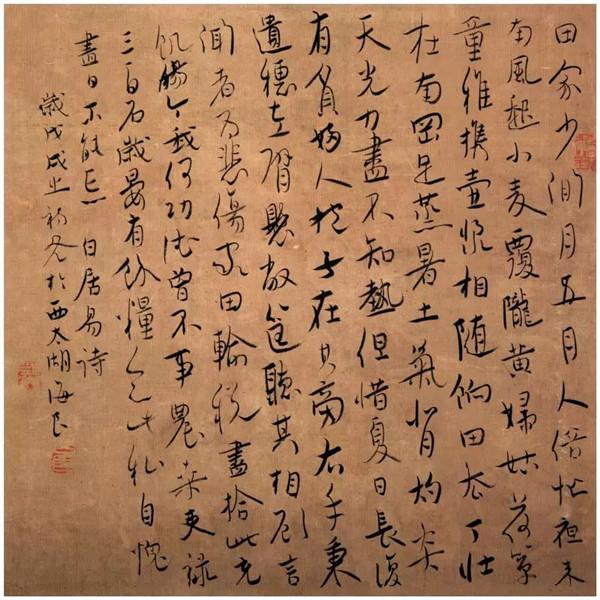 田家少閒月五月人倍忙夜来
南風起小麦覆隴黄婦姑荷箪
童稚携壺漿相随餉田去丁壮
在南岡足蒸暑土氣背灼炎
天光力盡不知熱但惜夏日長復
有貧婦人抱子在其旁右手秉
遺穗左臂懸敝筐聽其相顧言
聞者为悲傷家田輸税盡拾此充
飢腸今我何功德曾不事農桑吏禄
三百石歲晏有餘糧念此私自愧
盡日不能忘 白居易诗
歲戊戌之初冬於西太湖海